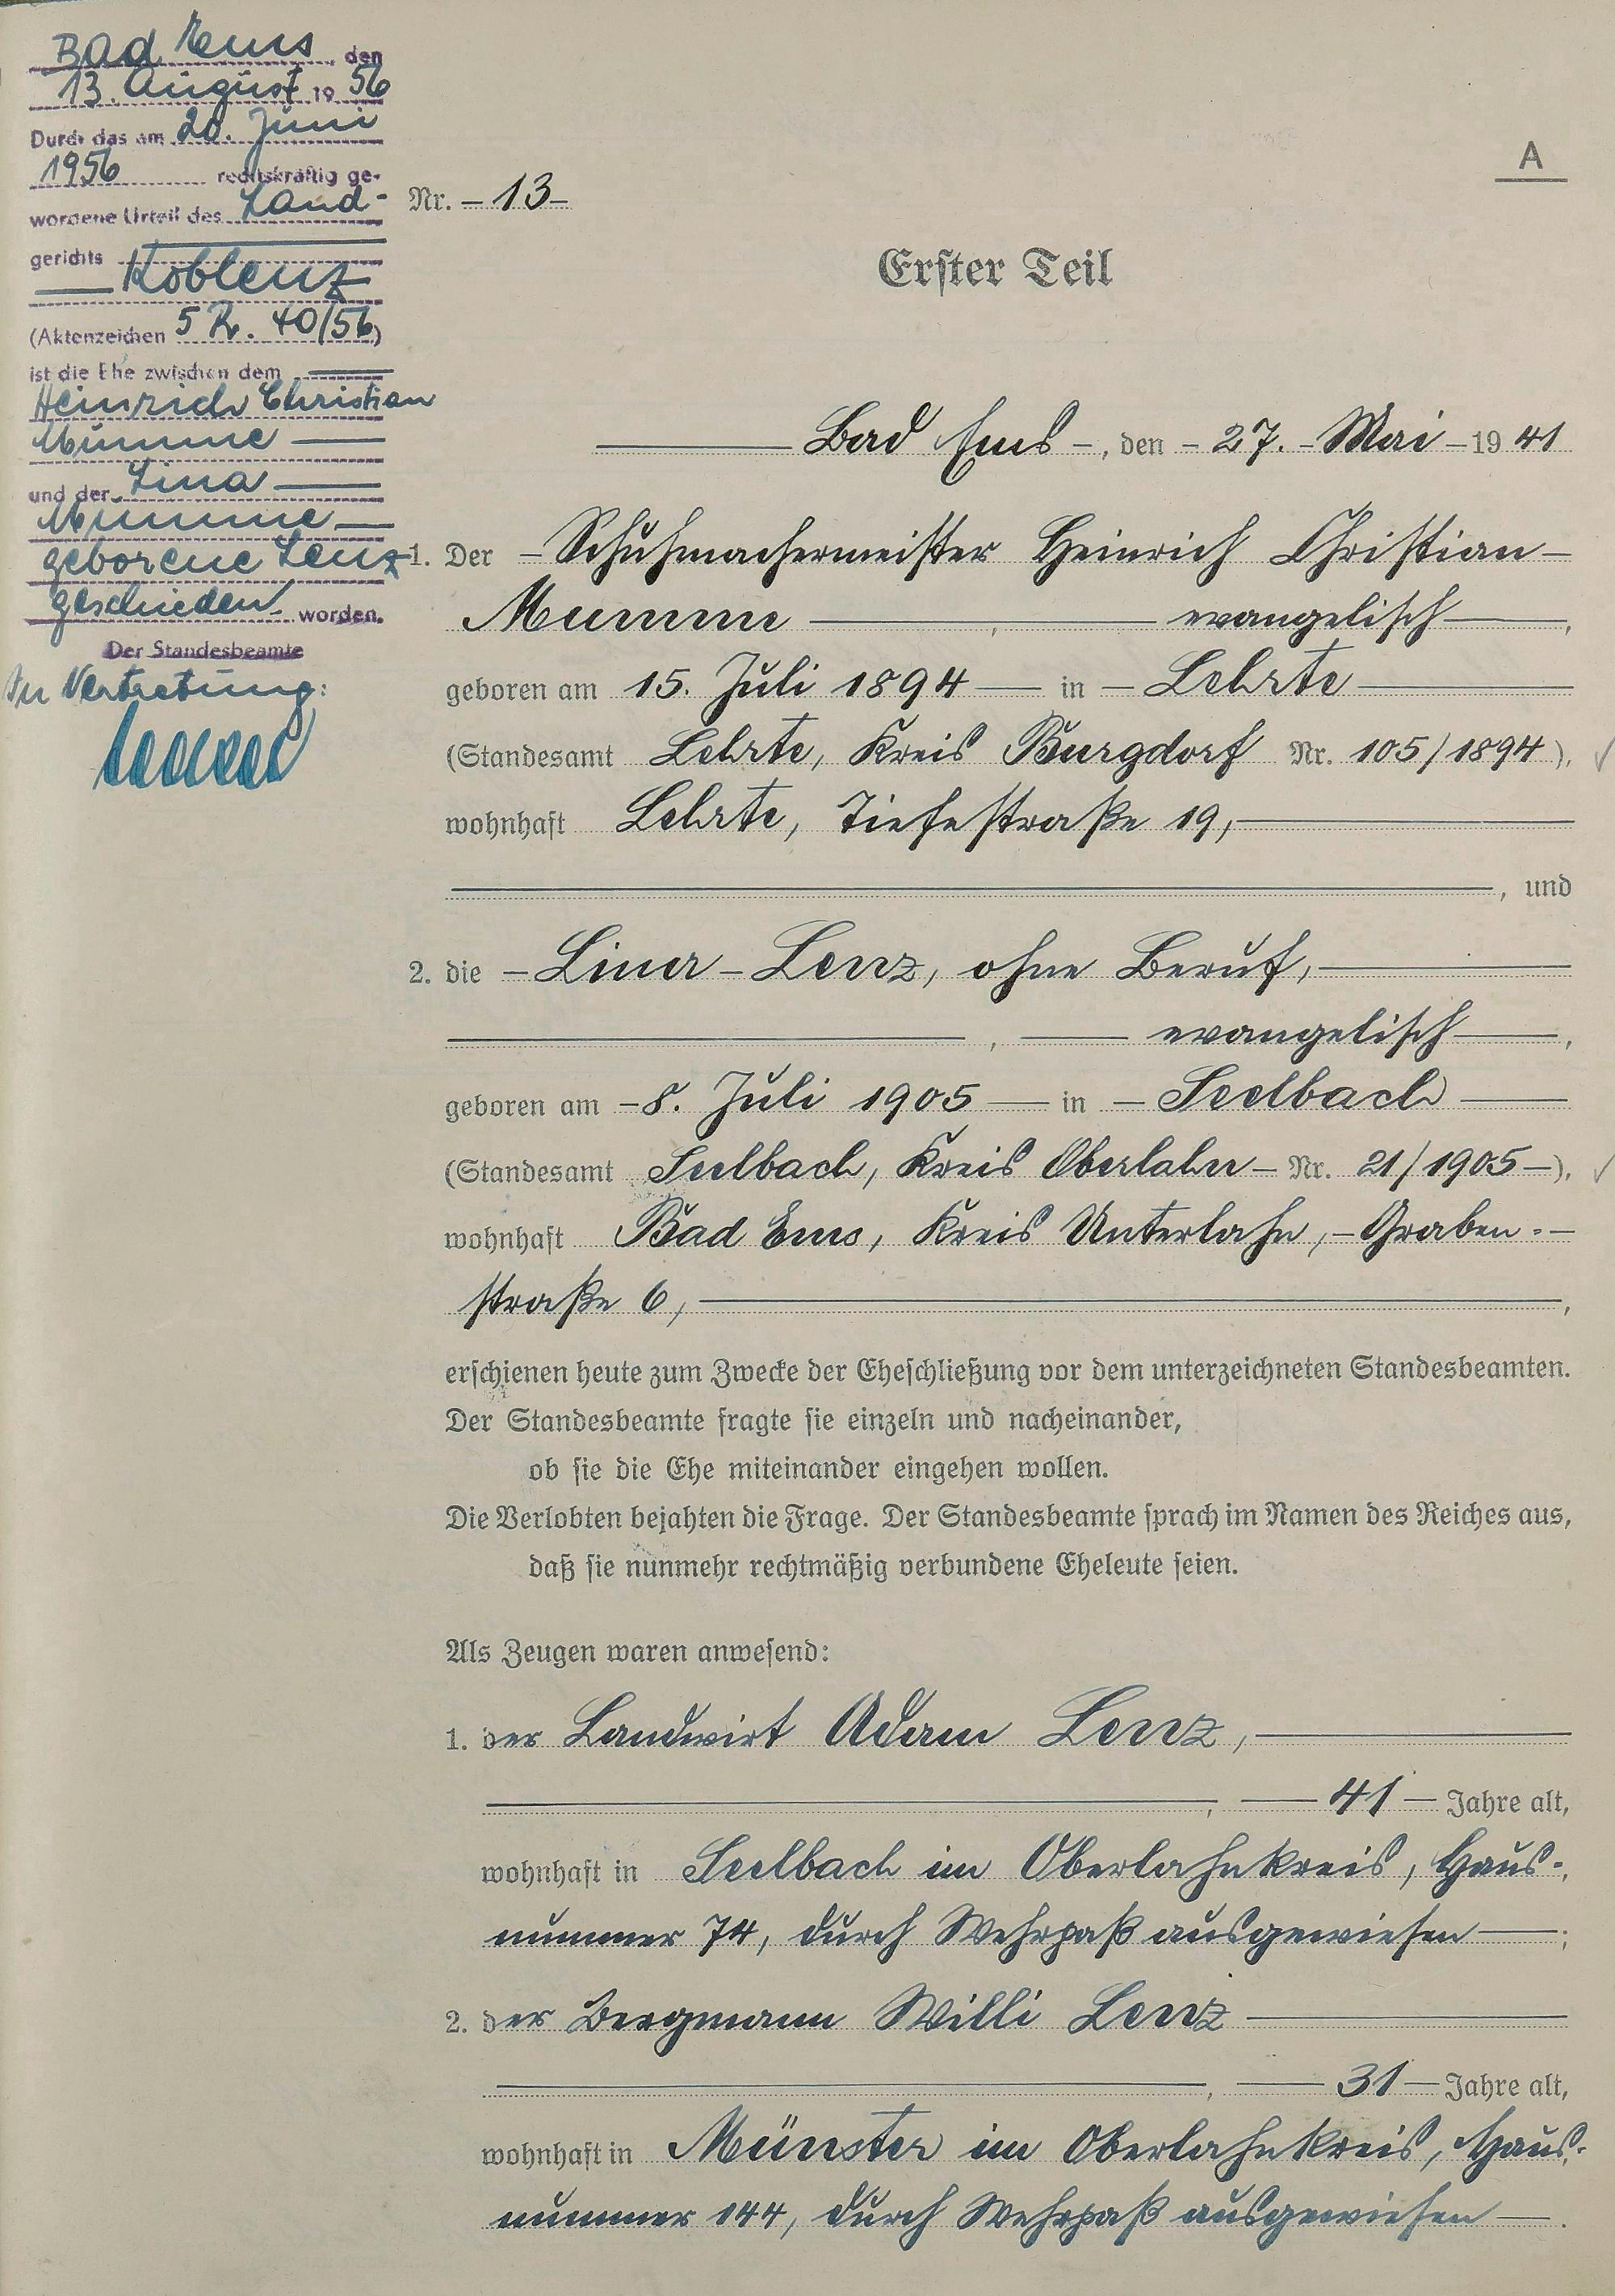 Bad Ems, den
13. August 1956
Durch das am 20. Juni
1956 rechtskräftig ge-
wordene Urteil des Land-
gerichts
Koblenz
(Aktenzeichen 5 R. 40/56)
ist die Ehe zwischen dem
Heinrich Christian
Mumme
und der Lina
Mumme
geborene Lenz
geschieden worden.
Der Standesbeamte
In Vertretung:
A
Nr. - 13 -
Erster Teil
Bad Ems -, den - 27. - Mai - 19 41
1. Der - Schuhmachermeister Heinrich Christian -
Mumme, evangelisch,
geboren am 15. Juli 1894 in - Lehrte
(Standesamt Lehrte, Kreis Burgdorf Nr. 105/1894),
wohnhaft Lehrte, Tiefestraße 19,
, und
2. die - Lina - Lenz, ohne Beruf,
, evangelisch,
geboren am - 8. Juli 1905 in - Seelbach
(Standesamt Seelbach, Kreis Oberlahn - Nr. 21/1905 -),
wohnhaft Bad Ems, Kreis Unterlahn, - Graben- -
straße 6,
erschienen heute zum Zwecke der Eheschließung vor dem unterzeichneten Standesbeamten.
Der Standesbeamte fragte sie einzeln und nacheinander,
ob sie die Ehe miteinander eingehen wollen.
Die Verlobten bejahten die Frage. Der Standesbeamte sprach im Namen des Reiches aus,
daß sie nunmehr rechtmäßig verbundene Eheleute seien.
Als Zeugen waren anwesend:
1. der Landwirt Adam Lenz,
, 41 - Jahre alt,
wohnhaft in Seelbach im Oberlahnkreis, Haus-
nummer 74, durch Wehrpaß ausgewiesen;
2. der Bergmann Willi Lenz
, 31 - Jahre alt,
wohnhaft in Münster im Oberlahnkreis, Haus-
nummer 144, durch Wehrpaß ausgewiesen.